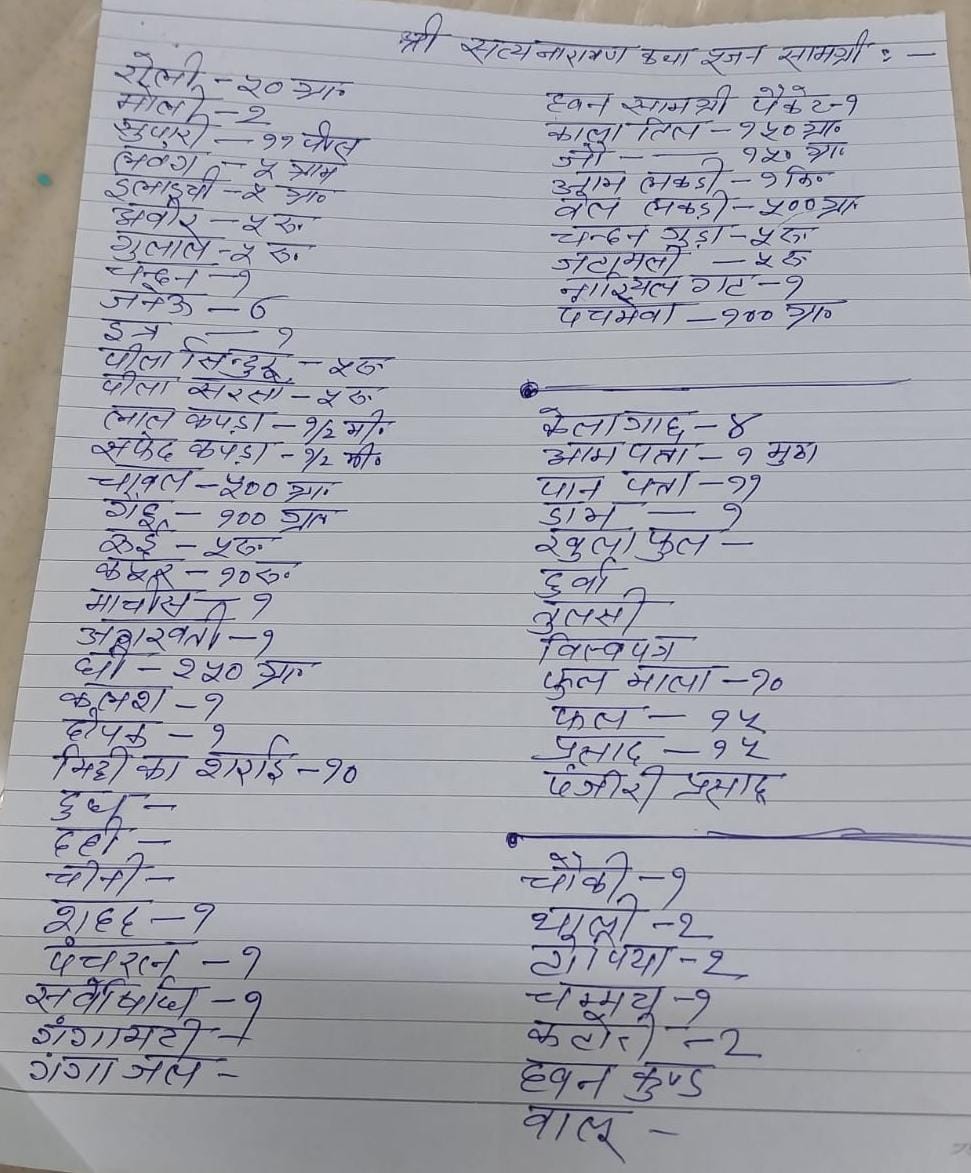 श्री सत्यनारायण कथा पूजन सामग्री : —
रोली - २० ग्रा॰
मोली - २
सुपारी - ११ पीस
लवंग - ५ ग्राम
इलाइची - ५ ग्रा॰
अबीर - ५ रु॰
गुलाल - ५ रु॰
चन्दन - १
जनेऊ - 6
इत्र — १
पीला सिन्दुर - ५रु
पीला सरसो - ५रु॰
लाल कपड़ा - १/२ मी॰
सफेद कपड़ा - १/२ मी॰
चावल - ५०० ग्रा॰
गेहूं - १०० ग्राम
रुई - ५रु॰
कपूर - १०रु॰
माचीस - १
अगरबत्ती - १
घी - २५० ग्रा॰
कलश - १
दीपक - १
मिट्टी का शराई - १०
दुध -
दही -
चीनी -
शहद - १
पंचरत्न - १
सर्वोषधि - १
गंगामटी - १
गंगा जल -
हवन सामग्री पैकेट - १
काला तिल - १५० ग्रा॰
जौ — १५० ग्रा॰
आम लकड़ी - १ कि॰
बेल लकड़ी - ५०० ग्रा॰
चन्दन गुड़ा - ५रु॰
जटामसी — ५रु
नारियल गट - १
पंचमेवा - १०० ग्रा॰
केला गाछ - ४
आम पता - १ मुठा
पान पत्ता - ११
डाभ — १
खुला फुल -
दुर्वा
तुलसी
विल्वपत्र
फुल माला - १०
फल - १५
प्रसाद - १५
पंजीरी प्रसाद
चौकी - १
थाली - २
टोपिया - २
चम्मच - १
कटोरी - २
हवन कुण्ड
बालू -